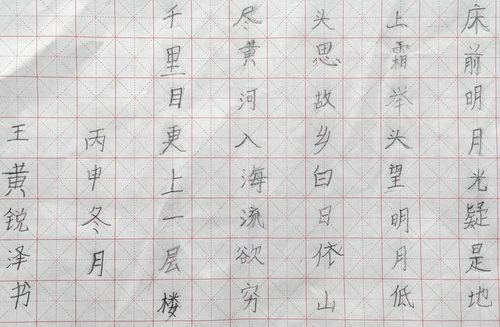 床前明月光疑是地
上霜举头望明月低
头思故乡白日依山
尽黄河入海流欲穷
千里目更上一层楼
丙申冬月
王黄锐泽书